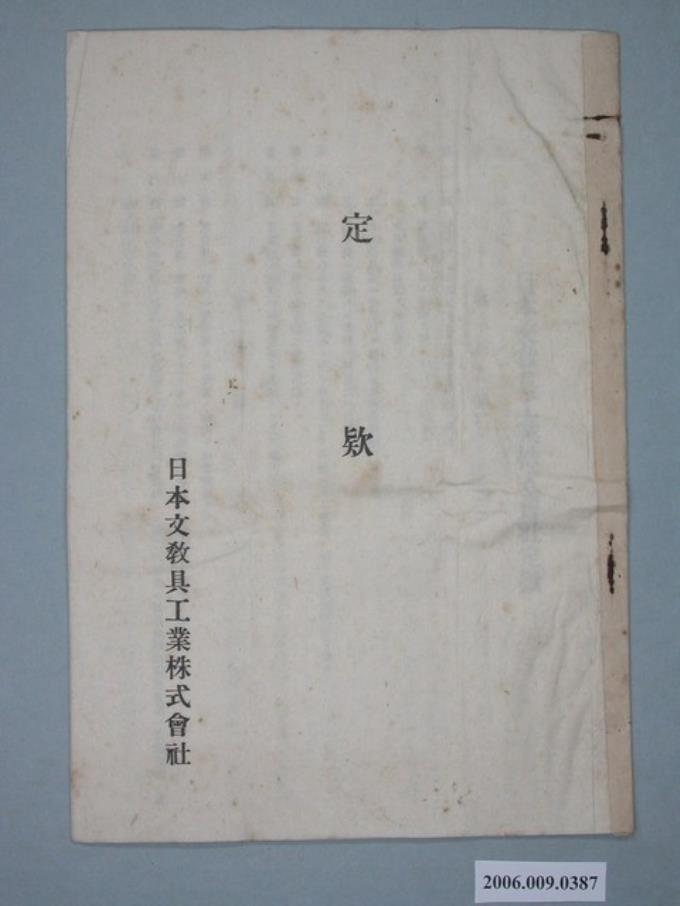 定欵
日本文教具工業株式會社
2006.009.0387